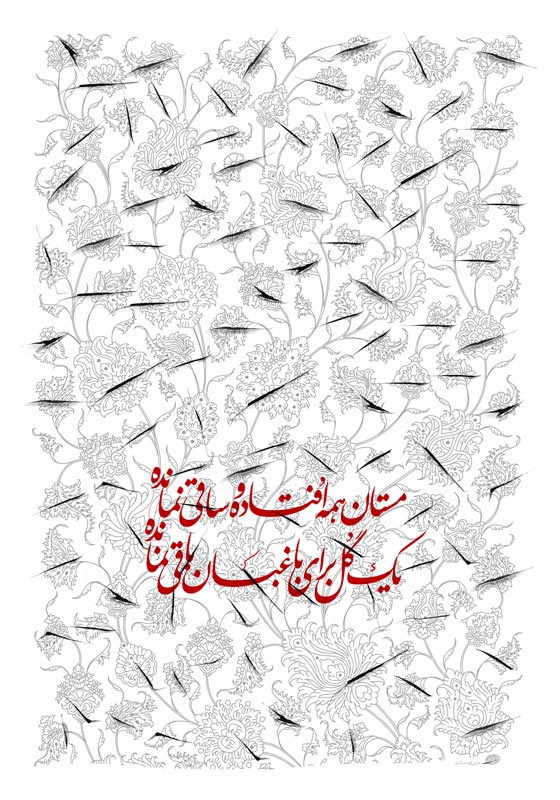 مستان همه افتاده و ساقی نمانده
یک گُل برای باغبان باقی نمانده